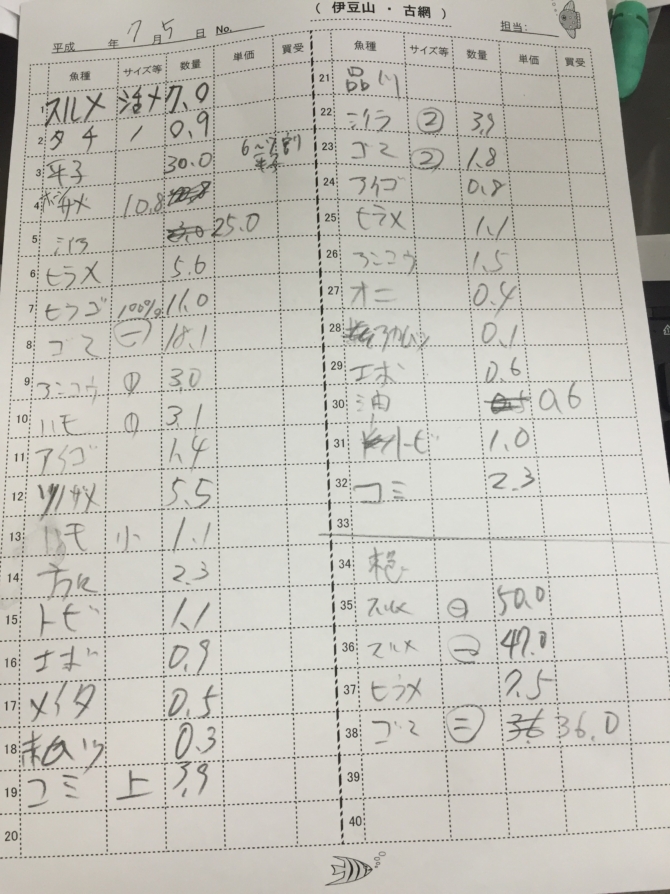 ( 伊豆山 ・ 古網 )
平成 年 7 月 5 日 No.
担当:
魚種 サイズ等 数量 単価 買受
1 スルメ 活〆 7.0
2 タチ 0.9
3 平子 30.0 6～7割 平子
4 10.8
5 25.0
6 ヒラメ 5.6
7 ヒラゴ 100% 11.0
8 ゴマ ㊁ 18.1
9 アンコウ ① 3.0
10 ハモ ① 3.1
11 アイゴ 1.4
12 5.5
13 ハモ 小 1.1
14 2.3
15 トビ 1.1
16 エボ 0.9
17 メイタ 0.5
18 0.3
19 コミ 上 3.9
20
魚種 サイズ等 数量 単価 買受
21 品川
22 ② 3.9
23 ゴマ ② 1.8
24 アイゴ 0.8
25 ヒラメ 1.1
26 アンコウ 1.5
27 オニ 0.4
28 0.1
29 エボ 0.6
30 油 0.6
31 1.0
32 コミ 2.3
33
34
35 スルメ ㊀ 50.0
36 マルメ ㊁ 47.0
37 ヒラメ 7.5
38 ゴマ ㊂ 36.0
39
40